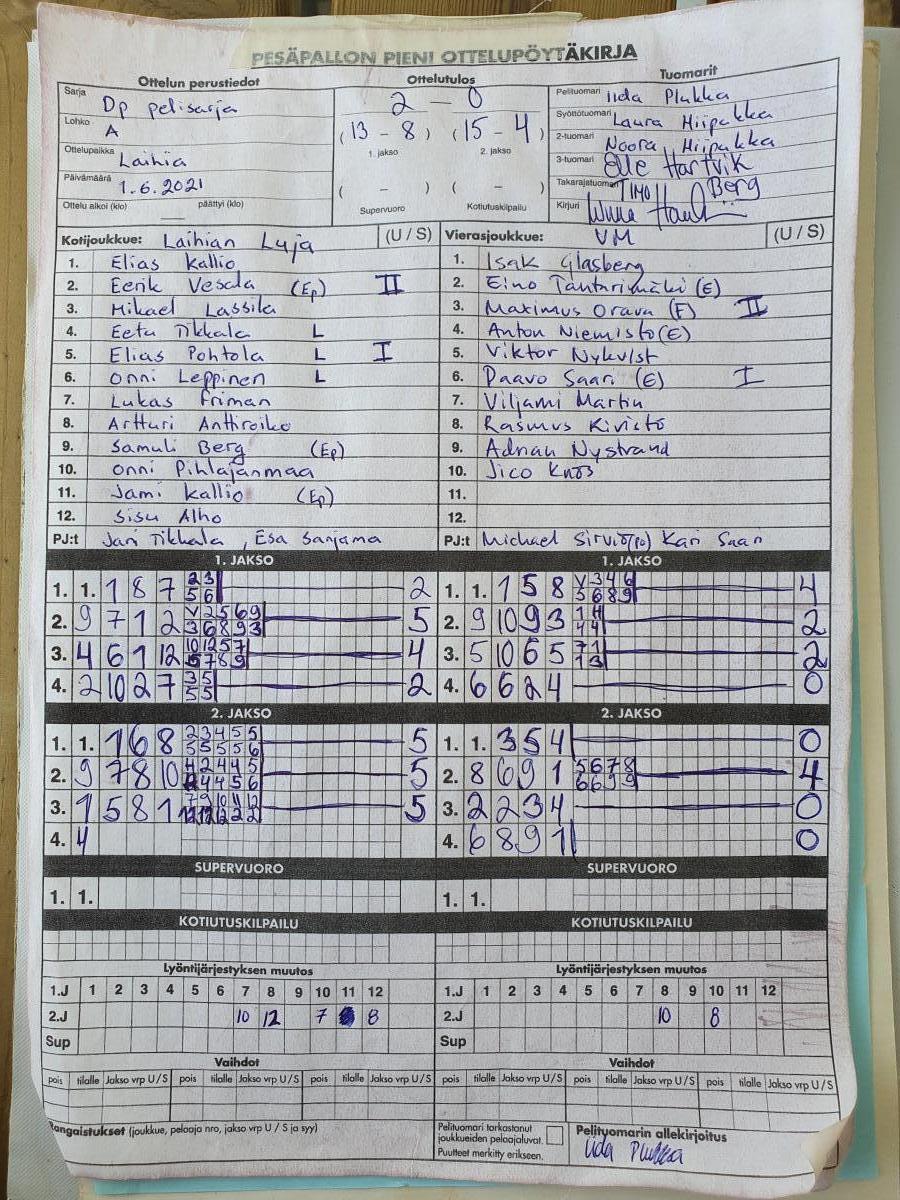 PESÄPALLON PIENI OTTELUPÖYTÄKIRJA
Ottelun perustiedot
Sarja Dp pelisarja
Lohko A
Ottelupaikka Laihia
Päivämäärä 1.6.2021
Ottelu alkoi (klo) päättyi (klo)
Ottelutulos
2 – 0
(13 – 8) (15 – 4)
1. jakso 2. jakso
( – ) ( – )
Supervuoro Kotiutuskilpailu
Tuomarit
Pelituomari Iida Plukka
Syöttötuomari Laura Hiipakka
2-tuomari Noora Hiipakka
3-tuomari Elle Hartvik
Takarajatuomari TIMO Berg
Kirjuri
Kotijoukkue: Laihian Luja (U / S)
1. Elias Kallio
2. Eerik Vesala (Ep) II
3. Mikael Lassila
4. Eetu Tikkala L
5. Elias Pohtola L I
6. Onni Leppinen L
7. Lukas Friman
8. Artturi Anttiroiko
9. Samuli Berg (Ep)
10. Onni Pihlajanmaa
11. Jami Kallio (Ep)
12. Sisu Alho
PJ:t Jari Tikkala, Esa Sanjama
Vierasjoukkue: VM (U / S)
1. Isak Glasberg
2. Eino Pantarimäki (E)
3. Maximus Orava (F) II
4. Anton Niemistö (E)
5. Viktor Nykvist
6. Paavo Saari (E) I
7. Viljami Martin
8. Rasmus Kivistö
9. Adrian Nystrand
10. Jico Knös
11.
12.
PJ:t Michael Sirviö(po) Kari Saari
1. JAKSO
1. 1. 1 8 7 2 3 5 6 2
2. 9 7 1 2 V 2 5 6 9 3 6 8 9 3 5
3. 4 6 1 12 10 12 5 7 5 7 8 9 4
4. 2 10 2 7 3 5 5 5 2
1. JAKSO
1. 1. 1 5 8 V 3 4 6 5 6 8 9 4
2. 9 10 9 3 1 4 4 4 2
3. 5 10 6 5 7 1 1 3 2
4. 6 6 2 4 0
2. JAKSO
1. 1. 1 6 8 2 3 4 5 5 5 5 5 5 6 5
2. 9 7 8 10 4 2 4 4 5 4 4 5 6 5
3. 1 5 8 1 7 9 10 11 12 5
4. 4
2. JAKSO
1. 1. 3 5 4 0
2. 8 6 9 1 5 6 7 8 6 6 9 9 4
3. 2 2 3 4 0
4. 6 8 9 1 0
SUPERVUORO
1. 1.
SUPERVUORO
1. 1.
KOTIUTUSKILPAILU
KOTIUTUSKILPAILU
Lyöntijärjestyksen muutos
1.J 1 2 3 4 5 6 7 8 9 10 11 12
2.J 10 12 7 8
Sup
Lyöntijärjestyksen muutos
1.J 1 2 3 4 5 6 7 8 9 10 11 12
2.J 10 8
Sup
Vaihdot
pois tilalle Jakso vrp U / S pois tilalle Jakso vrp U / S pois tilalle Jakso vrp U / S
Vaihdot
pois tilalle Jakso vrp U / S pois tilalle Jakso vrp U / S pois tilalle Jakso vrp U / S
Rangaistukset (joukkue, pelaaja nro, jakso vrp U / S ja syy)
Pelituomari tarkastanut
joukkueiden pelaajaluvat.
Puutteet merkitty erikseen.
Pelituomarin allekirjoitus
Iida Plukka